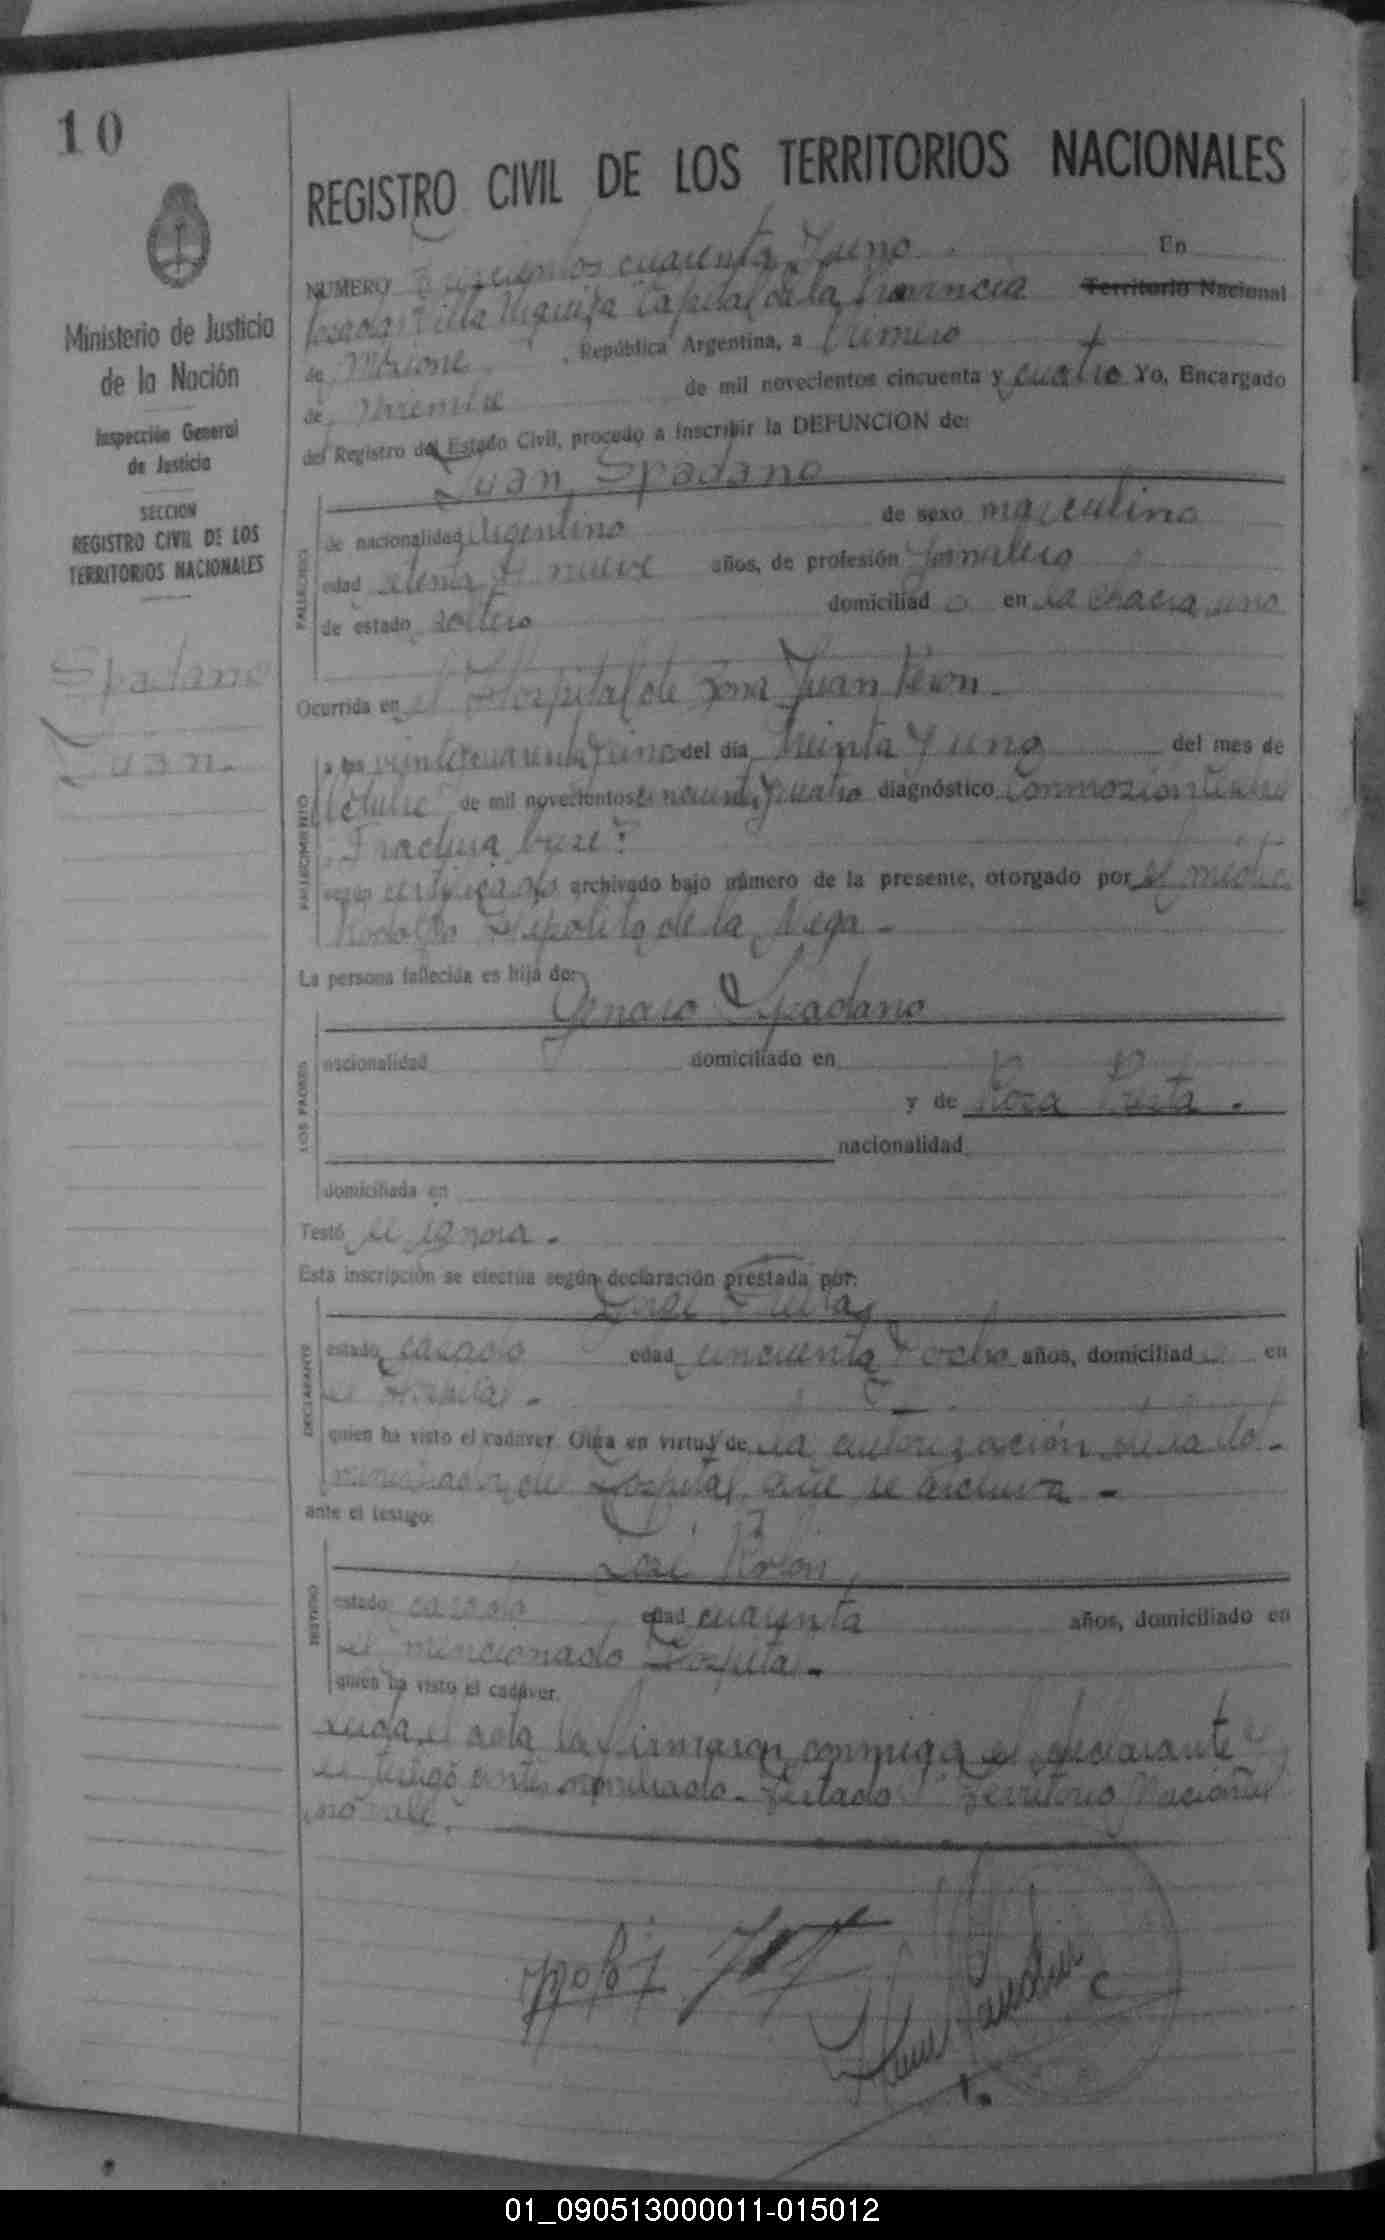 10
REGISTRO CIVIL DE LOS TERRITORIOS NACIONALES
Ministerio de Justicia
de la Nación
Inspección General
de Justicia
SECCION
REGISTRO CIVIL DE LOS
TERRITORIOS NACIONALES
Spadano
Juan.
NUMERO Trescientos cuarenta y uno. En
Capital de la Provincia Territorio Nacional
de Misiones, República Argentina, a Primero
de Noviembre de mil novecientos cincuenta y cuatro Yo, Encargado
del Registro del Estado Civil, procedo a inscribir la DEFUNCION de:
Juan Spadano
FALLECIDO
de nacionalidad Argentino de sexo masculino
edad setenta y nueve años, de profesión Jornalero
de estado soltero domiciliad o en la chacra uno
Ocurrida en el Hospital de Zona Juan Peron.
FALLECIMIENTO
a las veinte cuarenta y uno del día treinta y uno del mes de
Octubre de mil novecientos cincuenta y cuatro diagnóstico conmozion
Fractura base?
según certificado archivado bajo número de la presente, otorgado por el médico
Rodolfo Hipolito de la Vega -
La persona fallecida es hija de:
Genaro Spadano
LOS PADRES
nacionalidad domiciliado en
y de Rosa
nacionalidad
domiciliada en
Testó se ignora.
Esta inscripción se efectúa según declaración prestada por:
Jorge
DECLARANTE
estado casado edad cincuenta y ocho años, domiciliad o en
el Hospital -
quien ha visto el cadáver. Obra en virtud de la autorización de la Ad-
del Hospital que se archiva -
ante el testigo:
José
TESTIGO
estado casado edad cuarenta años, domiciliado en
el mencionado Hospital -
quien ha visto el cadáver.
Leida el acta la firmaron conmigo el declarante
el testigo antes nombrado. Testado Territorio Nacional
no vale.
01_090513000011-015012